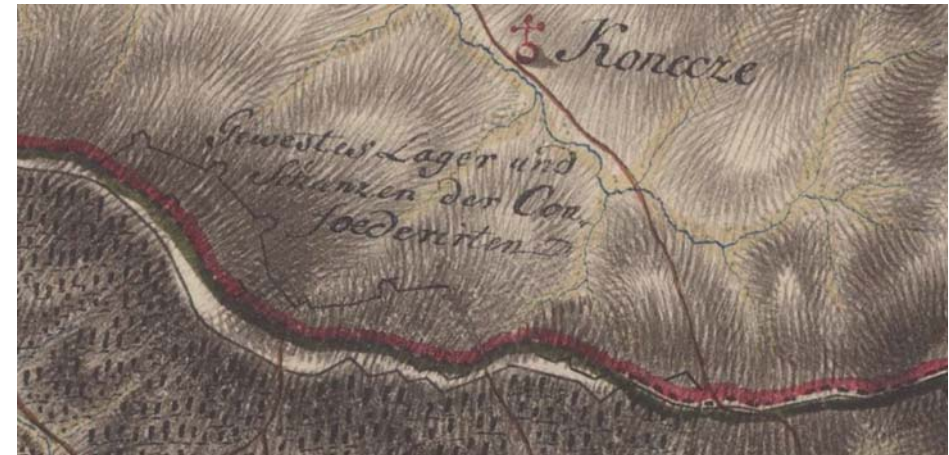 Konecze
Gewestus Lager und
Schanzen der Con,
foederirten